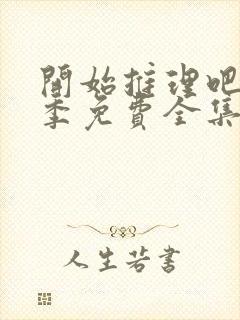 開始推理吧
季免費全集
人生若書